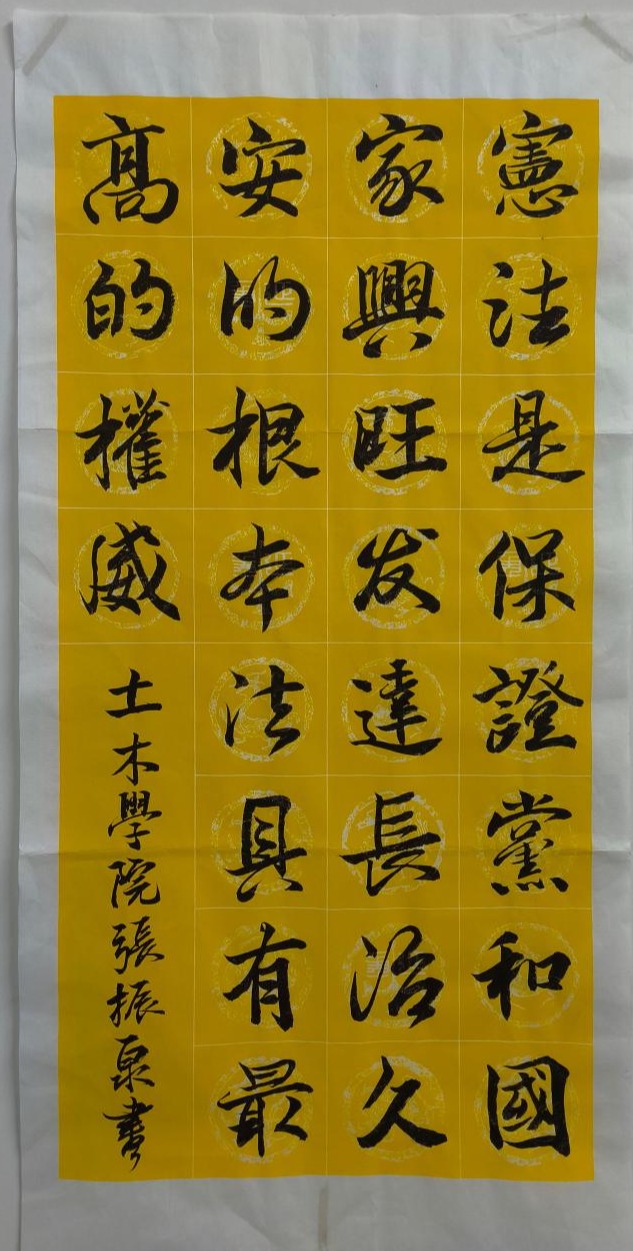 憲法是保證黨和國
家興旺发達長治久
安的根本法具有最
高的權威
土木學院張振泉書